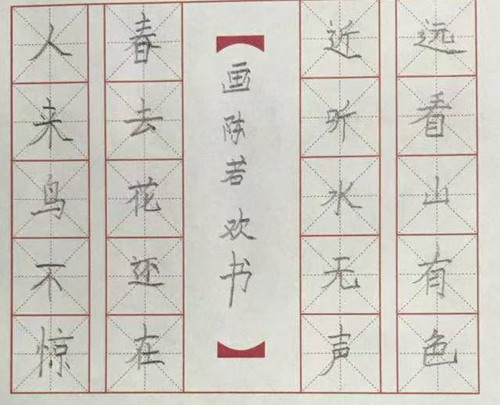 远看山有色
近听水无声
画陈若欢书
春去花还在
人来鸟不惊